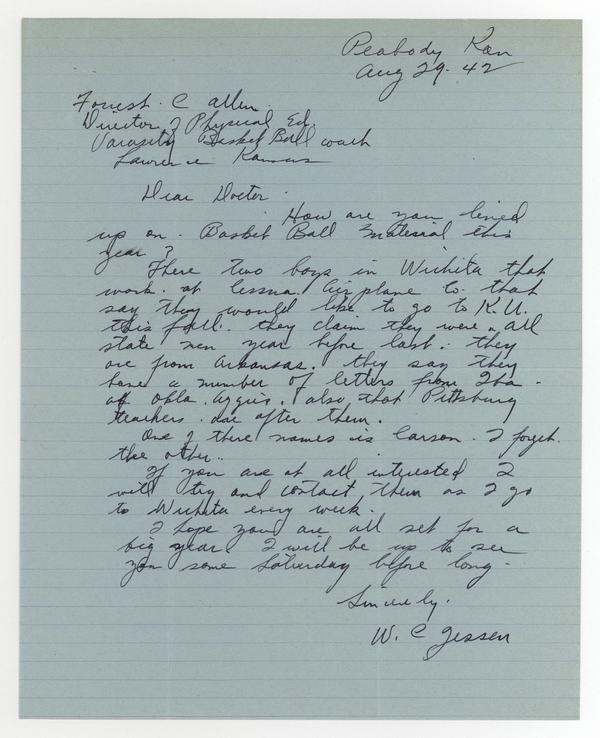 Peabody Kan
Aug 29. 42
Forrest. C Allen.
Director of Physical Ed.
Varasity Basket Ball coach
Lawrence Kansas
Dear Doctor.
How are you lined
up on. Basket Ball Material this
year?
There two boys in Wichita that
work. at Cessna. Air plane Co. that
say they would like to go to K.U.
this fall. they claim they were. all
state men year before last. they
are from Arkansas. they say they
have a number of letters from Iba.
of Okla. Aggies. also that Pittsburg
teachers. are after them.
One of there names is Carson. I forget.
the other..
If you are at all interested I
will try and contact them as I go
to Wichita every week.
I hope you are all set for a
big year. I will be up to see
you some Saturday before long.
Sincerely.
W. C Jessen